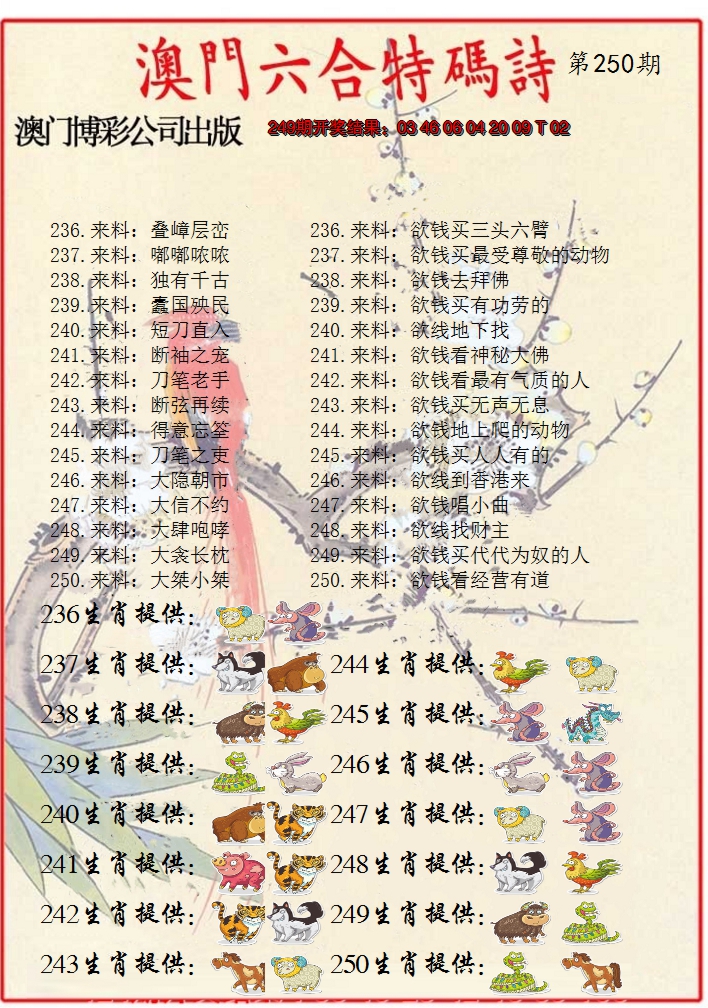 澳門六合特碼詩 第250期
澳门博彩公司出版 249期开奖结果：03 46 06 04 20 09 T 02
236.来料：叠嶂层峦 236.来料：欲钱买三头六臂
237.来料：嘟嘟哝哝 237.来料：欲钱买最受尊敬的动物
238.来料：独有千古 238.来料：欲钱去拜佛
239.来料：蠹国殃民 239.来料：欲钱买有功劳的
240.来料：短刀直入 240.来料：欲线地下找
241.来料：断袖之宠 241.来料：欲钱看神秘大佛
242.来料：刀笔老手 242.来料：欲钱看最有气质的人
243.来料：断弦再续 243.来料：欲钱买无声无息
244.来料：得意忘筌 244.来料：欲钱地上爬的动物
245.来料：刀笔之吏 245.来料：欲钱买人人有的
246.来料：大隐朝市 246.来料：欲线到香港来
247.来料：大信不约 247.来料：欲钱唱小曲
248.来料：大肆咆哮 248.来料：欲线找财主
249.来料：大衾长枕 249.来料：欲钱买代代为奴的人
250.来料：大桀小桀 250.来料：欲钱看经营有道
236生肖提供：
237生肖提供： 244生肖提供：
238生肖提供： 245生肖提供：
239生肖提供： 246生肖提供：
240生肖提供： 247生肖提供：
241生肖提供： 248生肖提供：
242生肖提供： 249生肖提供：
243生肖提供： 250生肖提供：